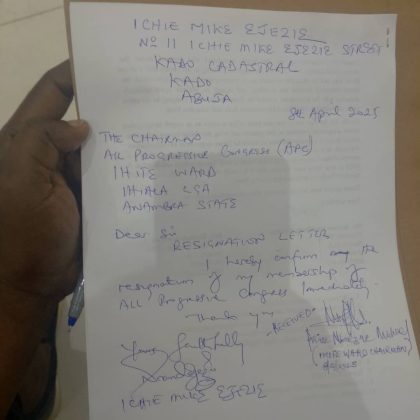 ICHIE MIKE EJEZIE
No 11 ICHIE MIKE EJEZIE STREET
KADO CADASTRAL
KADO
ABUJA
8th April 2025
THE CHAIRMAN
ALL PROGRESSIVE Congress (APC)
IHITE WARD
IHIALA LGA
ANAMBRA STATE
Dear Sir
RESIGNATION LETTER
I hereby confirm my the
resignation of my membership of
ALL Progressive Congress Immediately.
Thank you
Yours faithfully
ICHIE MIKE EJEZIE
RECEIVED
(IHITE WARD CHAIRMAN)